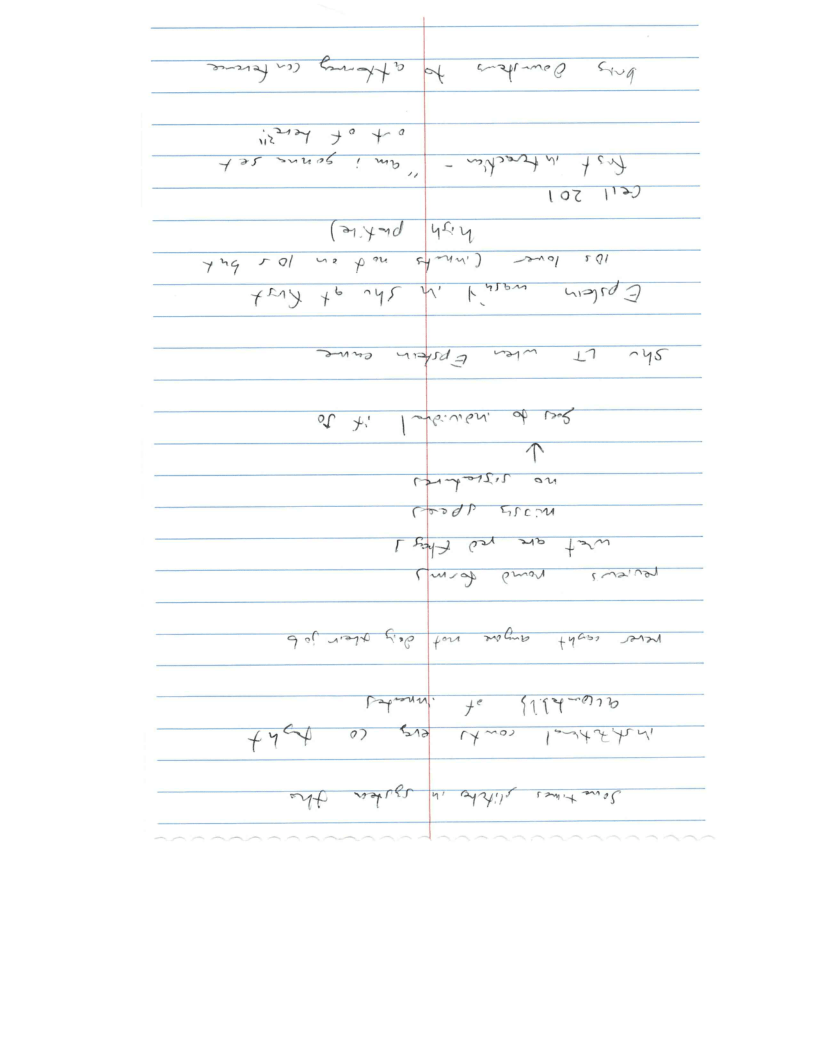 Sometimes glitches in system tho
institutional counts every CO taught
accountability of inmates
never caught anyone not doing their job
reviews round forms
what are red flags
missing
no signatures
↓
goes to individual if so
Shu LT when Epstein came
Epstein wasn't in Shu at first
10s (inmates not on 10 s but
high profile)
Cell 201
first interaction - "am i gonna get
out of here?"
bring Downstairs to attorney conference